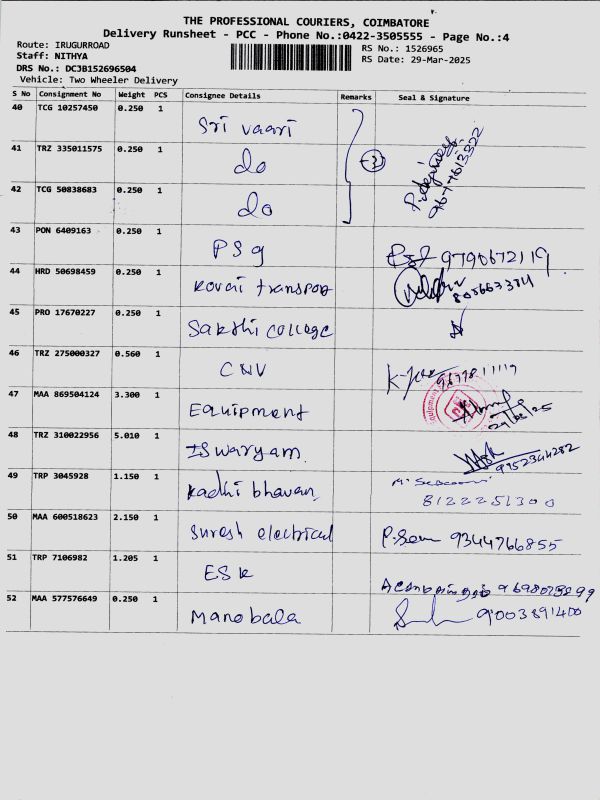 THE PROFESSIONAL COURIERS, COIMBATORE
Delivery Runsheet - PCC - Phone No.:0422-3505555 - Page No.:4
Route: IRUGURROAD
RS No.: 1526965
Staff: NITHYA
RS Date: 29-Mar-2025
DRS No.: DCJB152696504
Vehicle: Two Wheeler Delivery
S No Consignment No Weight PCS Consignee Details Remarks Seal & Signature
40 TCG 10257450 0.250 1 Sri vaari
41 TRZ 335011575 0.250 1 do 3
42 TCG 50838683 0.250 1 do
43 PON 6409163 0.250 1 PSg 9790672119
44 HRD 50698459 0.250 1 Kovai transpor
45 PRO 17670227 0.250 1 Sakthi college
46 TRZ 275000327 0.560 1 CNV
47 MAA 869504124 3.300 1 Equipment
48 TRZ 310022956 5.010 1 Iswaryam 9952344282
49 TRP 3045928 1.150 1 Kadhi bhavan 8122251300
50 MAA 600518623 2.150 1 Suresh electrical 9344766855
51 TRP 7106982 1.205 1 ESK
52 MAA 577576649 0.250 1 Manobala 9003891400